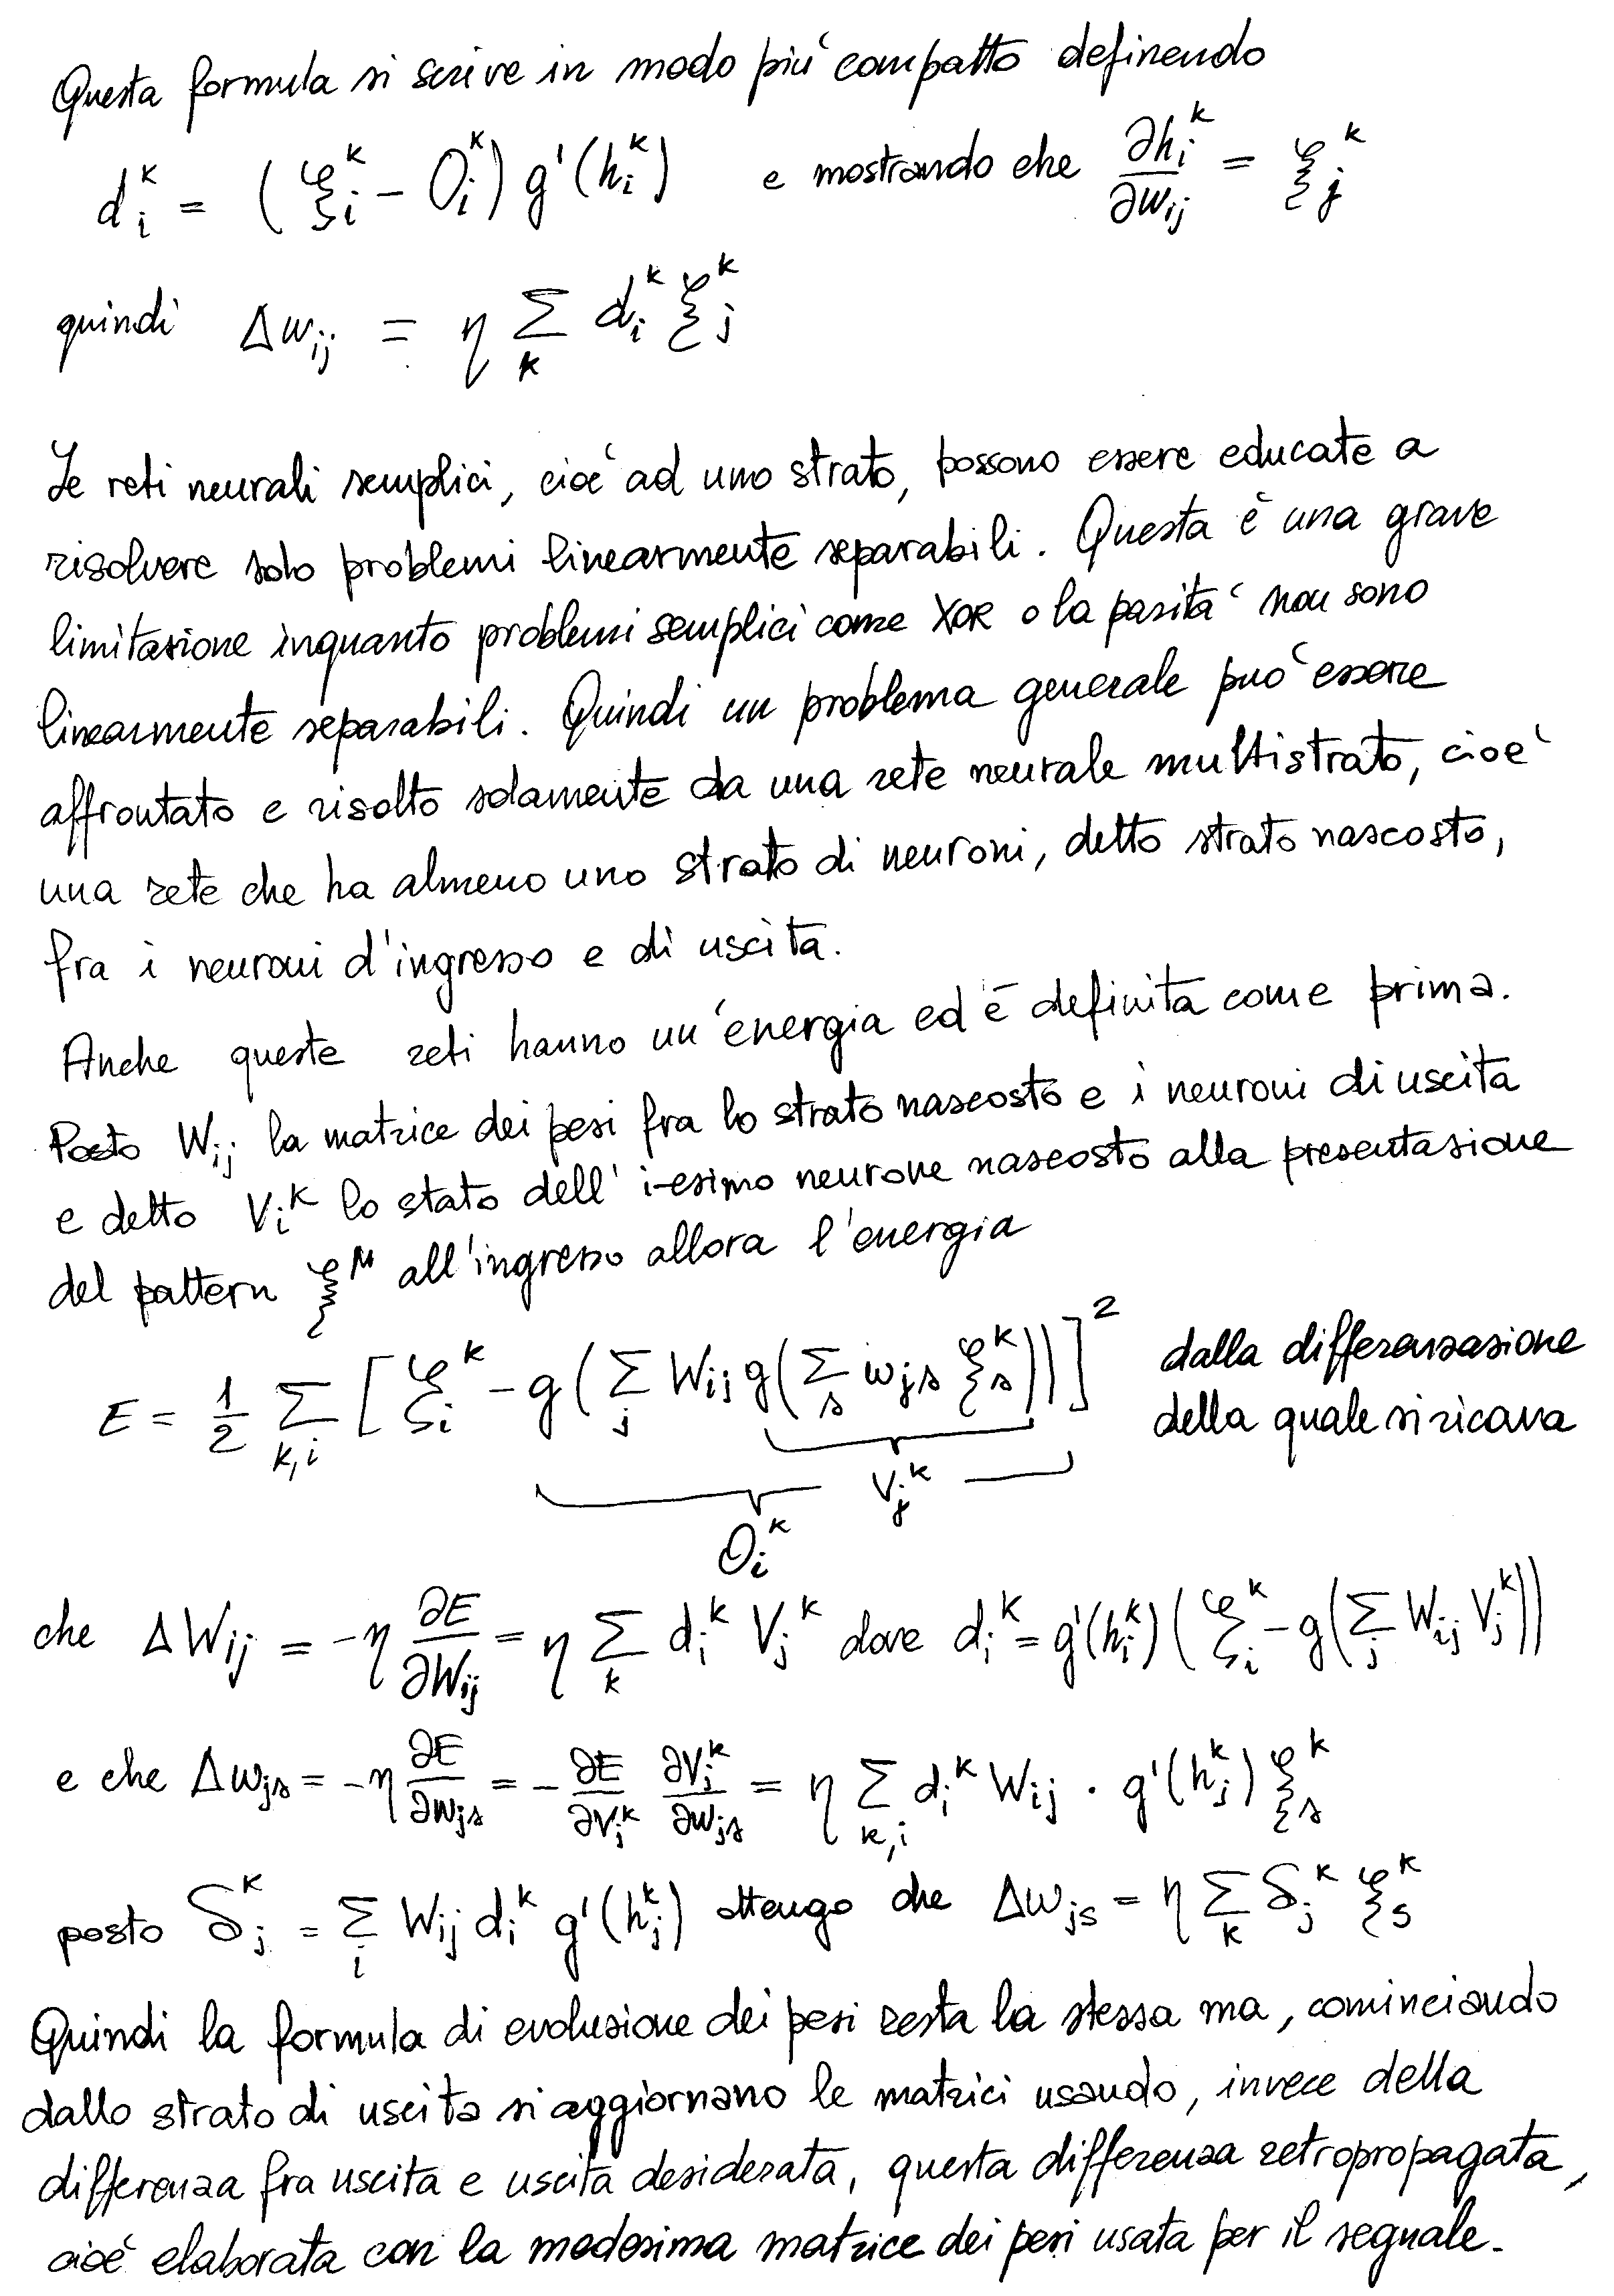 Questa formula si scrive in modo piu' compatto definendo
d_i^k = (ζ_i^k - O_i^k) g'(h_i^k) e mostrando che ∂h_i^k/∂w_ij = ξ_j^k
quindi Δw_ij = η Σ_k d_i^k ξ_j^k
Le reti neurali semplici, cioe' ad uno strato, possono essere educate a
risolvere solo problemi linearmente separabili. Questa è una grave
limitazione inquanto problemi semplici come XOR o la parita' non sono
linearmente separabili. Quindi un problema generale puo' essere
affrontato e risolto solamente da una rete neurale multistrato, cioe'
una rete che ha almeno uno strato di neuroni, detto strato nascosto,
fra i neuroni d'ingresso e di uscita.
Anche queste reti hanno un'energia ed è definita come prima.
Posto W_ij la matrice dei pesi fra lo strato nascosto e i neuroni di uscita
e detto V_i^k lo stato dell'i-esimo neurone nascosto alla presentazione
del pattern ξ^μ all'ingresso allora l'energia
E = 1/2 Σ_k,i [ζ_i^k - g(Σ_j W_ij g(Σ_s w_js ξ_s^k))]^2 dalla differenzazione
della quale si ricava
V_j^k
O_i^k
che ΔW_ij = -η ∂E/∂W_ij = η Σ_k d_i^k V_j^k dove d_i^k = g'(h_i^k) (ζ_i^k - g(Σ_j W_ij V_j^k))
e che Δw_js = -η ∂E/∂w_js = - ∂E/∂V_j^k ∂V_j^k/∂w_js = η Σ_k,i d_i^k W_ij · g'(h_j^k) ξ_s^k
posto δ_j^k = Σ_i W_ij d_i^k g'(h_j^k) ottengo che Δw_js = η Σ_k δ_j^k ξ_s^k
Quindi la formula di evoluzione dei pesi resta la stessa ma, cominciando
dallo strato di uscita si aggiornano le matrici usando, invece della
differenza fra uscita e uscita desiderata, questa differenza retropropagata,
cioè elaborata con la medesima matrice dei pesi usata per il segnale.